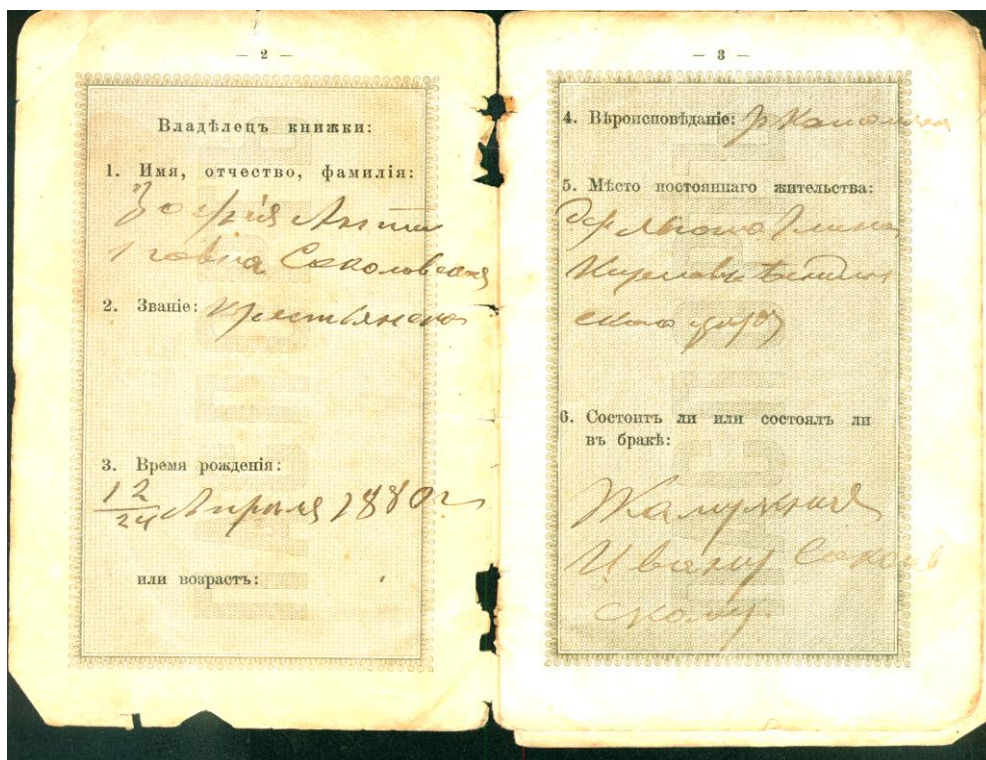 — 2 —
Владѣлецъ книжки:
1. Имя, отчество, фамилія:
Зофія Анто
новна Соколовская
2. Званіе: Крестьянска
3. Время рожденія:
12/24 Апрѣля 1880 г
или возрастъ:
— 3 —
4. Вѣроисповѣданіе: р Католич
5. Мѣсто постояннаго жительства:
Глина
ского уѣзда
6. Состоитъ ли или состоялъ ли
въ бракѣ:
Замужняя
Ивану Соколов
скому